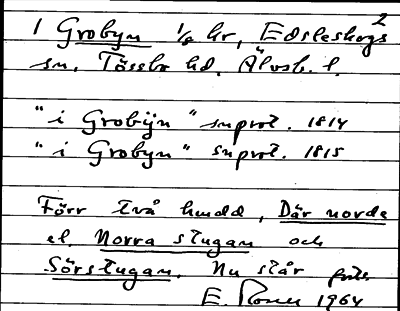 2
1 Grobyn 1/2 kr, Edsleskogs
sn, Tössbo hd. Älvsb. l.
"i Grobÿn" snprot. 1814
"i Grobyn" snprot. 1815
Förr två hudd, Där norde
el. Norra stugan och
Sörstugan. Nu står
E. 1964